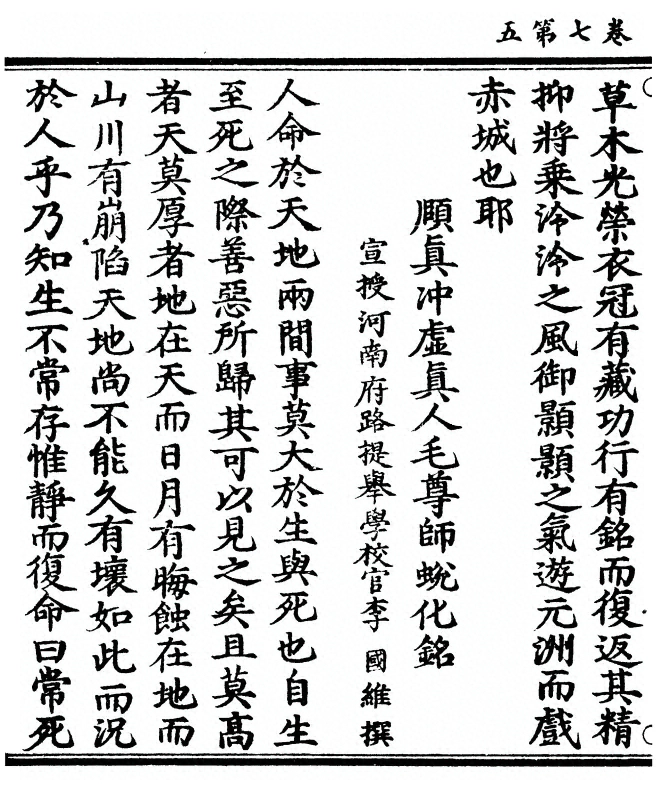 卷七第五
草木光榮衣冠有藏功行有銘而復返其精
抑將乘泠泠之風御顥顥之氣遊元洲而戲
赤城也耶
頤眞冲虛眞人毛尊師蛻化銘
宣授河南府路提舉學校官李國維撰
人命於天地兩間事莫大於生與死也自生
至死之際善惡所歸其可以見之矣且莫高
者天莫厚者地在天而日月有晦蝕在地而
山川有崩陷天地尚不能久有壞如此而況
於人乎乃知生不常存惟靜而復命曰常死